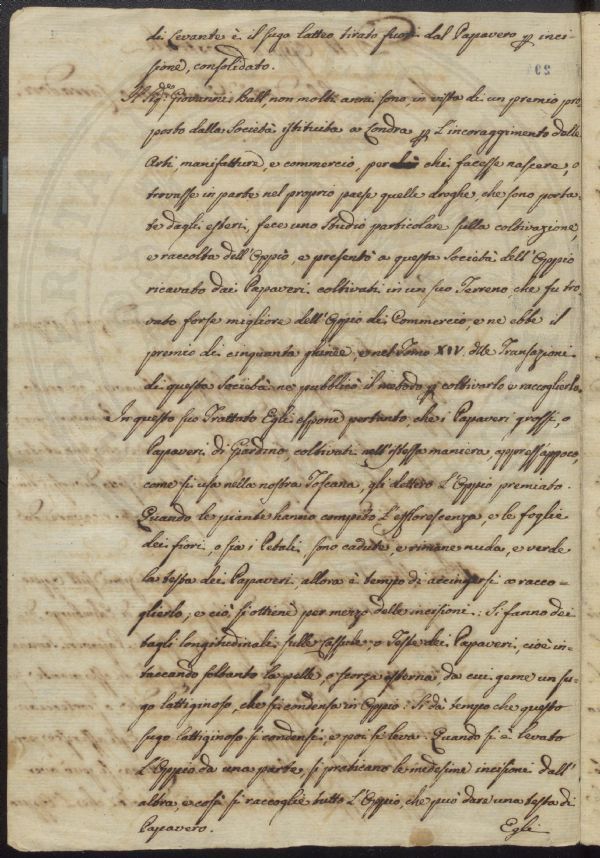 di Levante è il sugo latteo tirato fuori dal Papavero p inci
sione, consolidato.
Il Sig.re Giovanni Ball, non molti anni sono in vista di un premio pro
posto dalla Società istituita a Londra p l'incoraggimento delle
Arti, manifatture, e commercio, perchè chi facesse nascere, o
trovasse in parte nel proprio paese quelle droghe, che sono porta
te dagli esteri, fece uno studio particolare sulla coltivazione,
e raccolta dell'Oppio, e presentò a questa Società dell'Oppio
ricavato dai Papaveri coltivati in un suo Terreno che fu tro
vato forse migliore dell'Oppio di Commercio, e ne ebbe il
premio di cinquanta ghinee, e nel Tomo XIV. delle Transazioni
di questa Società ne pubblicò il metodo p coltivarlo e raccoglierlo.
In questo suo Trattato Egli espone pertanto, che i Papaveri grossi, o
Papaveri di Giardino, coltivati nell'istessa maniera, appress'appoco,
come si usa nella nostra Toscana, gli dettero l'Oppio premiato.
Quando le piante hanno compito l'efflorescenza, e le foglie
dei fiori, o sia i Petali, sono cadute, e rimane nuda, e verde
la testa dei Papaveri, allora è tempo di accingersi a racco-
glierlo, e ciò si ottiene per mezzo delle incisioni: Si fanno dei
tagli longitudinali sulle Cassule, o Teste dei Papaveri, cioè in-
taccando soltanto la pelle, o scorza esterna da cui geme un su-
go lattiginoso, che si condensa in Oppio: Si dà tempo che questo
sugo lattiginoso si condensi, e poi si leva. Quando si è levato
l'Oppio da una parte, si praticano le medesime incisione dall'
altra, e così si raccoglie tutto l'Oppio, che può dare una testa di
Papavero.
Egli